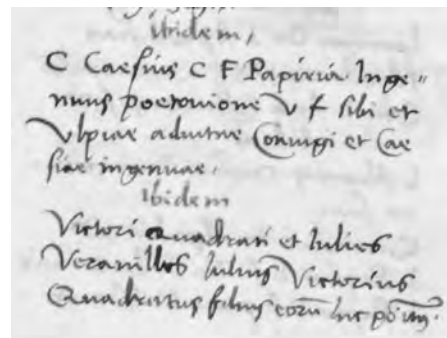 ibidem,
C Caesius C F Papiria Inge,,
nuus poetovione V f sibi et
Vlpiae adiutae Coniugi et Cae
siae ingenuae,
Ibidem
Victori Quadrati et Iulies
Veranilles Iulius Victorius
Quadratus filius eorū hic